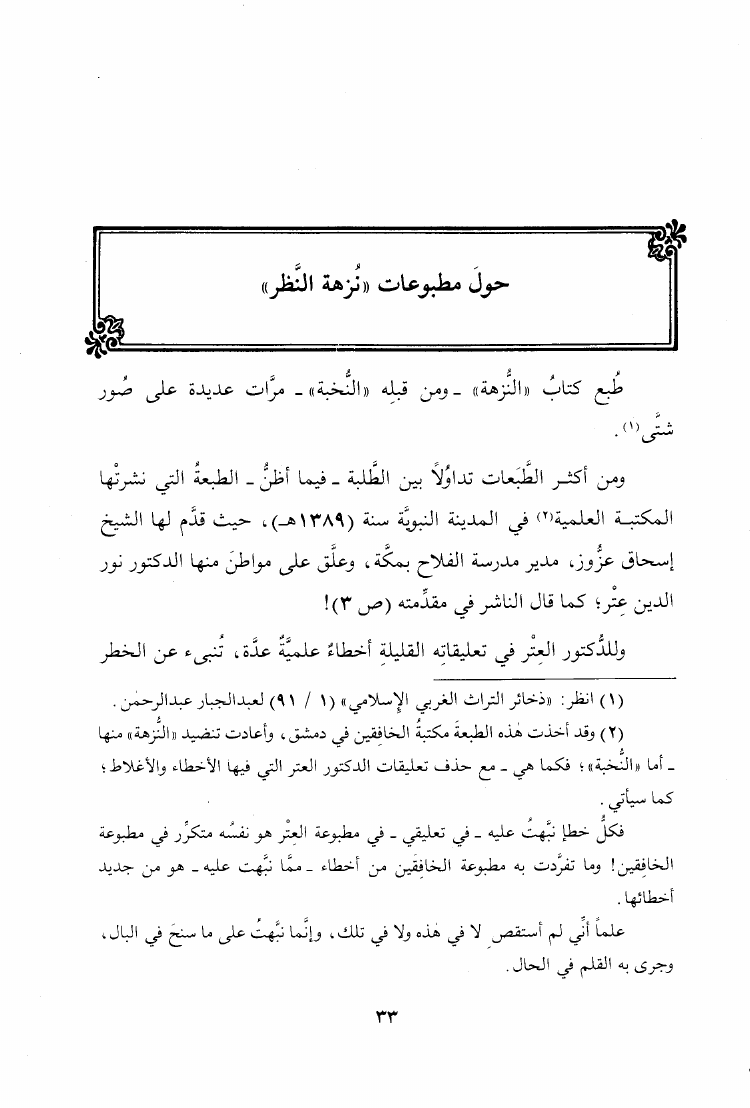 حولَ مطبوعات «نُزهة النَّظر»
طُبع كتابُ «النُّزهة» ـ ومن قبلِه «النُّخبة» ـ مرَّات عديدة على صُور
شتَّى(١).
ومن أكثـر الطَّبَعات تداوُلاً بين الطَّلبة ـ فيما أظنُّ ـ الطبعةُ التي نشرتْها
المكتبـة العلمية(٢) في المدينة النبويَّة سنة (١٣٨٩هـ)، حيث قدَّم لها الشيخ
إسحاق عزُّوز، مدير مدرسة الفلاح بمكَّة، وعلَّق على مواطنَ منها الدكتور نور
الدين عِتْر؛ كما قال الناشر في مقدِّمته (ص ٣)!
وللدُّكتور العِتْر في تعليقاتِه القليلةِ أخطاءٌ علميَّةٌ عدَّة، تُنبىء عن الخطر
(١) انظر: «ذخائر التراث الغربي الإسلامي» (١ / ٩١) لعبدالجبار عبدالرحمٰن.
(٢) وقد أخذت هٰذه الطبعةَ مكتبةُ الخافِقين في دمشق، وأعادت تنضيد «النُّزهة» منها
ـ أما «النُّخبة»؛ فكما هي ـ مع حذف تعليقات الدكتور العتر التي فيها الأخطاء والأغلاط؛
كما سيأتي.
فكلُّ خطإ نبَّهتُ عليه ـ في تعليقي ـ في مطبوعة العِتْر هو نفسُه متكرِّر في مطبوعة
الخافِقين! وما تفرَّدت به مطبوعة الخافِقَين من أخطاء ـ ممَّا نبَّهت عليه ـ هو من جديد
أخطائها.
علماً أنِّي لم أستقصِ لا في هٰذه ولا في تلك، وإنَّما نبَّهتُ على ما سنحَ في البال،
وجرى به القلم في الحال.
٣٣